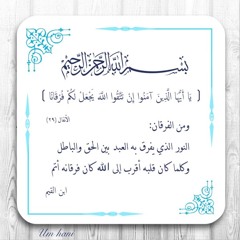 بسم الله الرحمن الرحيم
( يَا أَيُّهَا الَّذِينَ آمَنُوا إِن تَتَّقُوا اللَّهَ يَجْعَل لَّكُمْ فُرْقَانًا )
الأنفال (٢٩)
ومن الفرقان:
النور الذي يفرق به العبد بين الحق والباطل
وكلما كان قلبه أقرب إلى الله كان فرقانه أتم
ابن القيم
Um hani